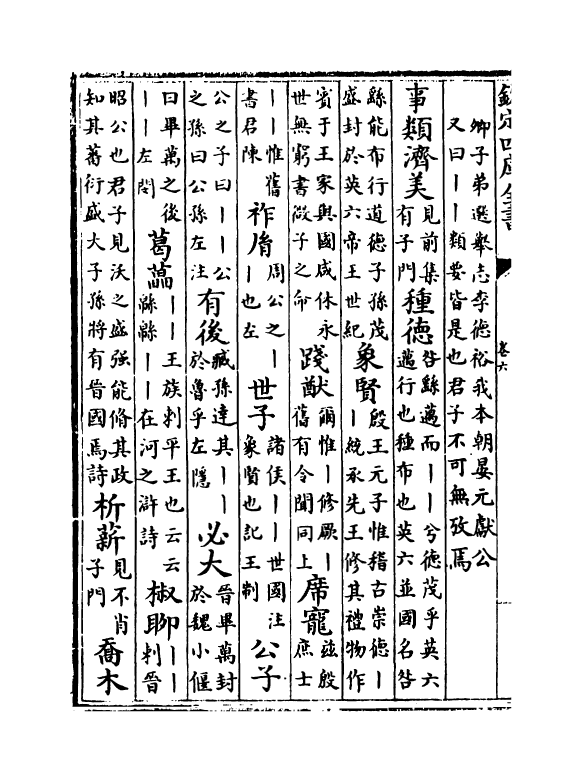 欽定四庫全書
卷六
卿子弟選舉志李德裕我本朝晏元獻公又曰——類要皆是也君子不可無攷焉
事類濟美見前集有子門種德咎繇邁而——兮德茂乎英六邁行也種布也英六並國名咎
繇能布行道德子孫茂盛封於英六帝王世紀象賢殷王元子惟稽古崇德——統承先王修其禮物作
賓于王家與國咸休永世無窮書微子之命踐猷爾惟—修厥—舊有令聞同上席寵茲殷庶士
——惟舊書君陳祚胤周公之——也左世子諸侯——世國注象賢也記王制公子
公之子曰——公之孫曰公孫左注有後臧孫達其——於魯乎左隱必大晉畢萬封於魏小偃
曰畢萬之後——左閔葛藟——王族刺平王也云云緜緜——在河之滸詩椒聊——刺晉
昭公也君子見沃之盛强能脩其政知其蕃衍盛大子孫將有晉國焉詩析薪見不肖子門喬木